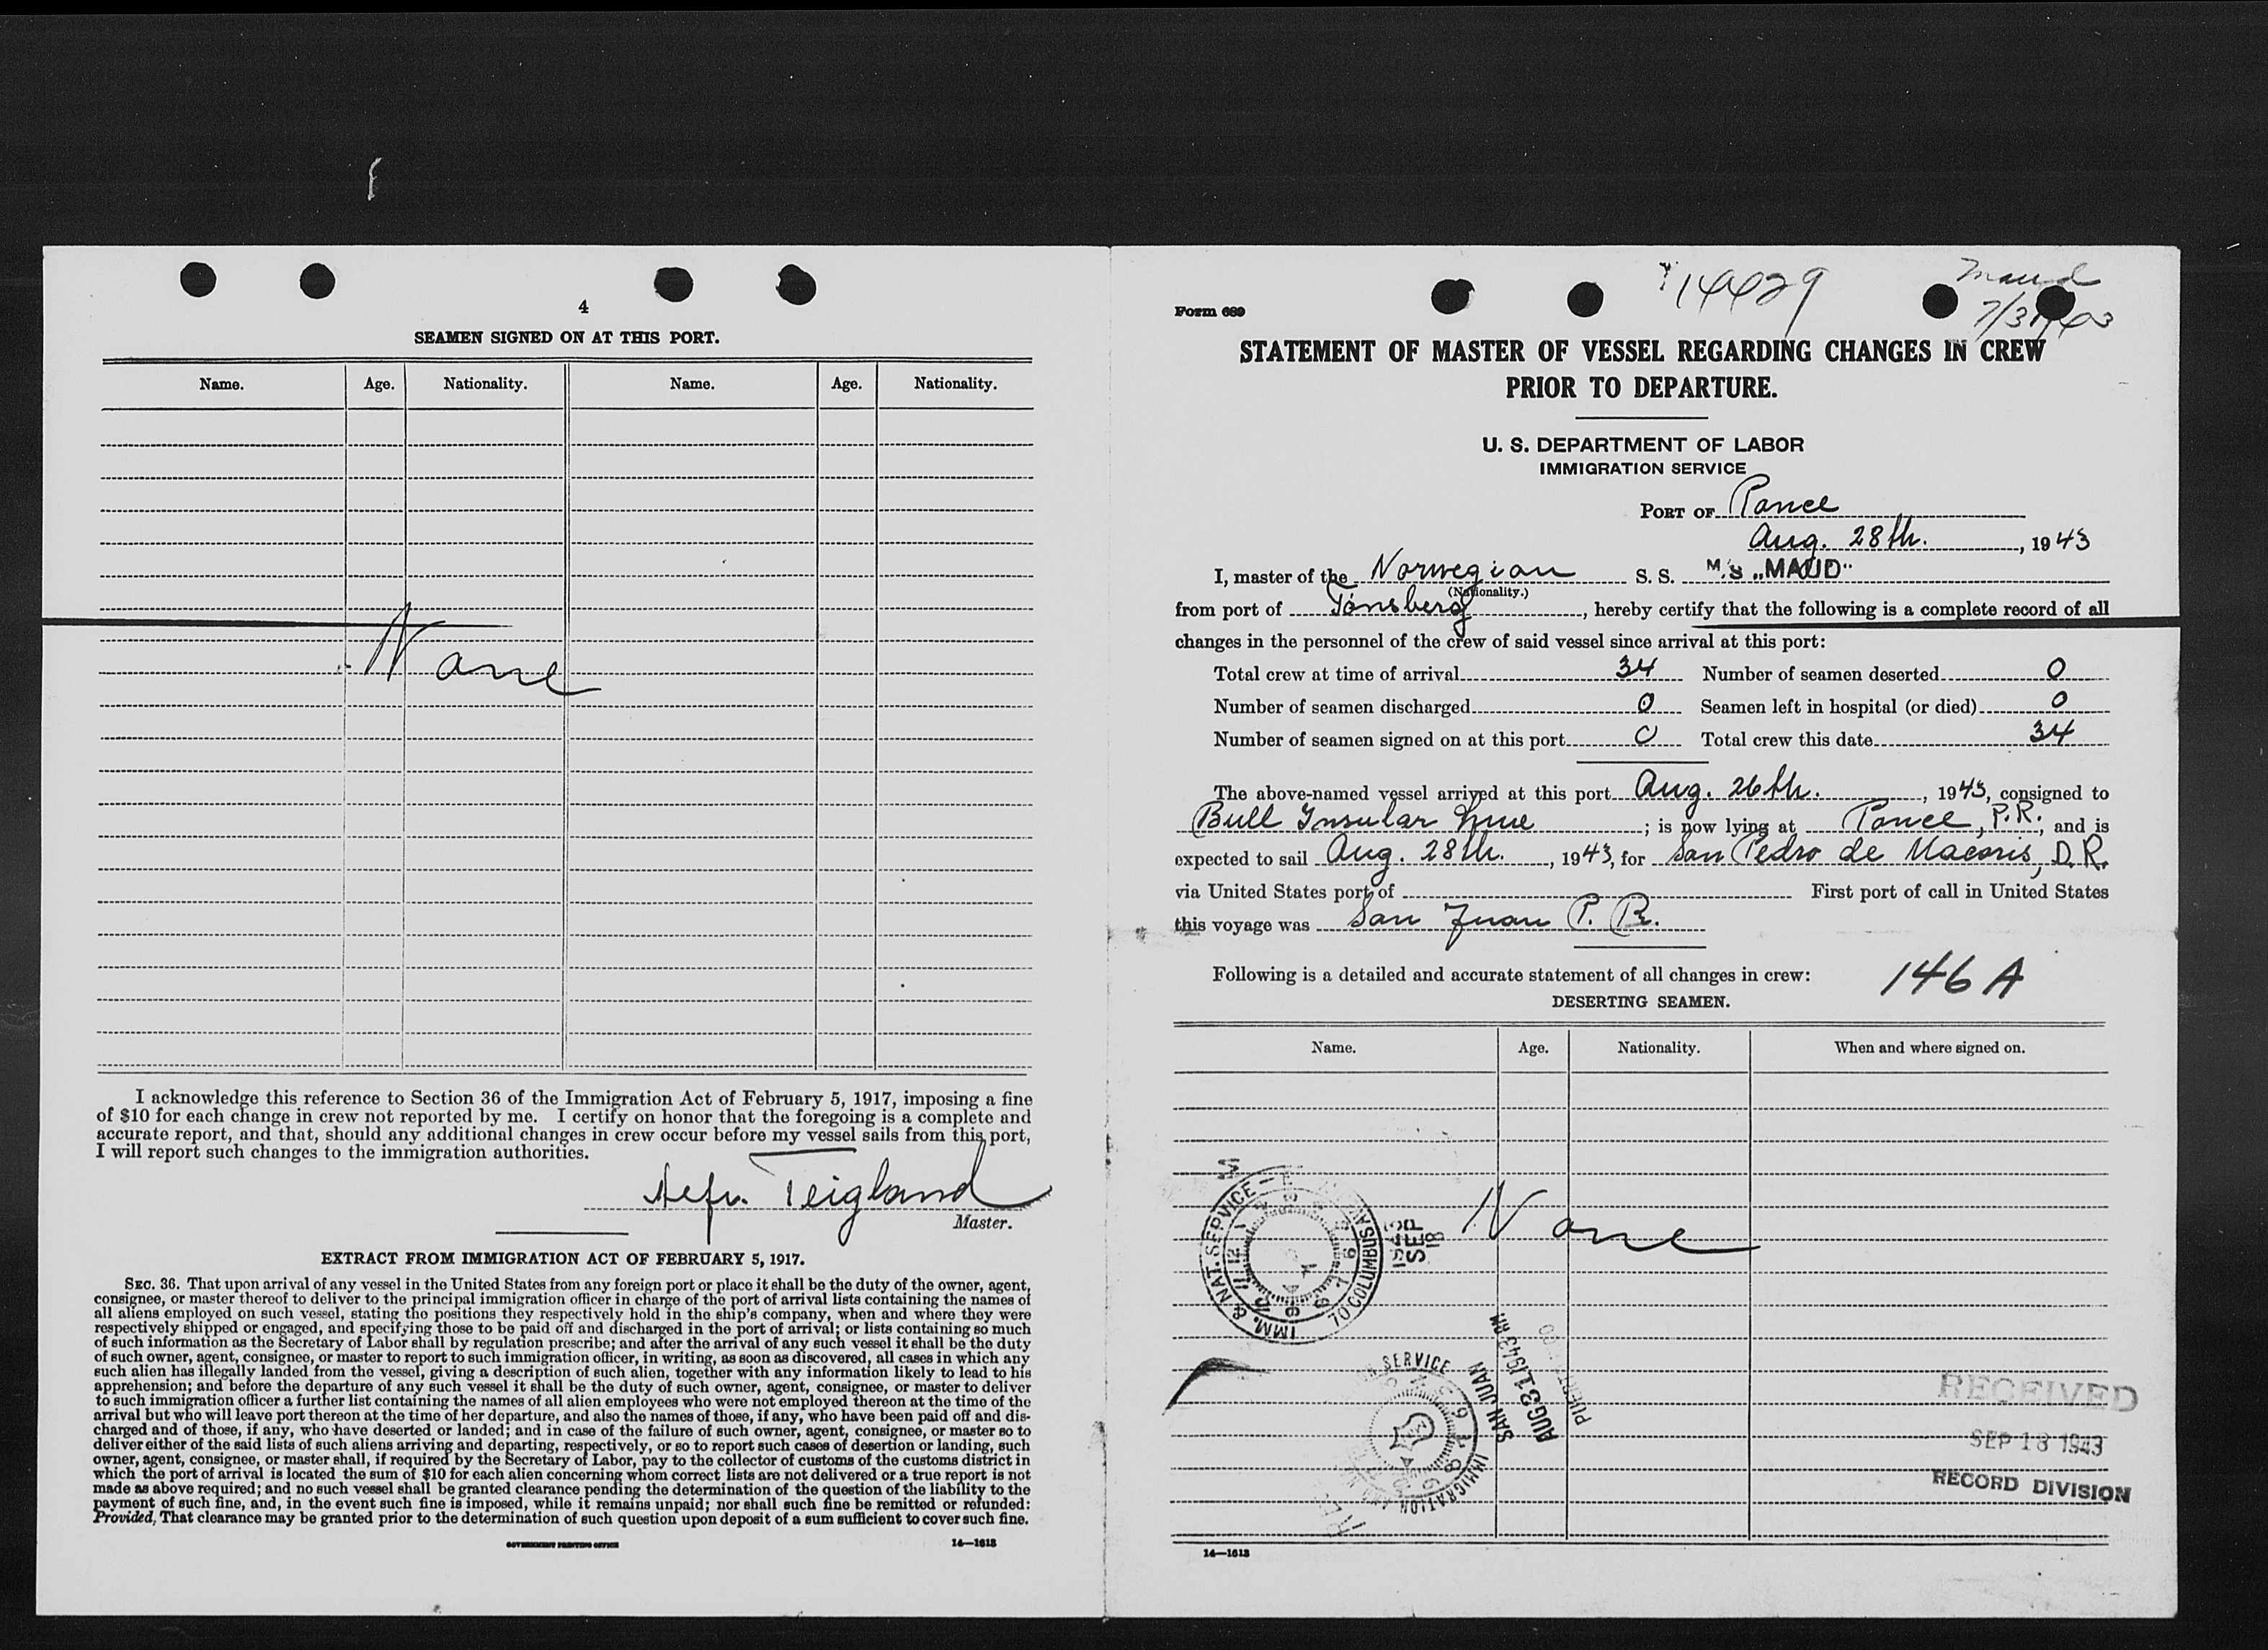 4
SEAMEN SIGNED ON AT THIS PORT.
Name. Age. Nationality. Name. Age. Nationality.
None
I acknowledge this reference to Section 36 of the Immigration Act of February 5, 1917, imposing a fine
of $10 for each change in crew not reported by me. I certify on honor that the foregoing is a complete and
accurate report, and that, should any additional changes in crew occur before my vessel sails from this port,
I will report such changes to the immigration authorities.
Teigland
Master.
EXTRACT FROM IMMIGRATION ACT OF FEBRUARY 5, 1917.
SEC. 36. That upon arrival of any vessel in the United States from any foreign port or place it shall be the duty of the owner, agent,
consignee, or master thereof to deliver to the principal immigration officer in charge of the port of arrival lists containing the names of
all aliens employed on such vessel, stating the positions they respectively hold in the ship's company, when and where they were
respectively shipped or engaged, and specifying those to be paid off and discharged in the port of arrival; or lists containing so much
of such information as the Secretary of Labor shall by regulation prescribe; and after the arrival of any such vessel it shall be the duty
of such owner, agent, consignee, or master to report to such immigration officer, in writing, as soon as discovered, all cases in which any
such alien has illegally landed from the vessel, giving a description of such alien, together with any information likely to lead to his
apprehension; and before the departure of any such vessel it shall be the duty of such owner, agent, consignee, or master to deliver
to such immigration officer a further list containing the names of all alien employees who were not employed thereon at the time of the
arrival but who will leave port thereon at the time of her departure, and also the names of those, if any, who have been paid off and dis-
charged and of those, if any, who have deserted or landed; and in case of the failure of such owner, agent, consignee, or master so to
deliver either of the said lists of such aliens arriving and departing, respectively, or so to report such cases of desertion or landing, such
owner, agent, consignee, or master shall, if required by the Secretary of Labor, pay to the collector of customs of the customs district in
which the port of arrival is located the sum of $10 for each alien concerning whom correct lists are not delivered or a true report is not
made as above required; and no such vessel shall be granted clearance pending the determination of the question of the liability to the
payment of such fine, and, in the event such fine is imposed, while it remains unpaid; nor shall such fine be remitted or refunded:
Provided, That clearance may be granted prior to the determination of such question upon deposit of a sum sufficient to cover such fine.
GOVERNMENT PRINTING OFFICE 14—1613
Maud
14429
Form 689
STATEMENT OF MASTER OF VESSEL REGARDING CHANGES IN CREW
PRIOR TO DEPARTURE.
U. S. DEPARTMENT OF LABOR
IMMIGRATION SERVICE
PORT OF Ponce
Aug. 28th., 1943
I, master of the Norwegian S. S. M.S „MAUD"
(Nationality.)
from port of Tönsberg, hereby certify that the following is a complete record of all
changes in the personnel of the crew of said vessel since arrival at this port:
Total crew at time of arrival 34 Number of seamen deserted 0
Number of seamen discharged 0 Seamen left in hospital (or died) 0
Number of seamen signed on at this port 0 Total crew this date 34
The above-named vessel arrived at this port Aug. 26th., 1943, consigned to
Bull Insular Line; is now lying at Ponce, P.R., and is
expected to sail Aug. 28th., 1943, for San Pedro de Macoris, D.R.
via United States port of First port of call in United States
this voyage was San Juan P. R.
Following is a detailed and accurate statement of all changes in crew: 146 A
DESERTING SEAMEN.
Name. Age. Nationality. When and where signed on.
None
IMM. & NAT. SERVICE
70 COLUMBUS AV
1943 SEP 18
SAN JUAN
AUG 31 1943
IMMIGRATION
SERVICE
RECEIVED
SEP 18 1943
RECORD DIVISION
14—1613